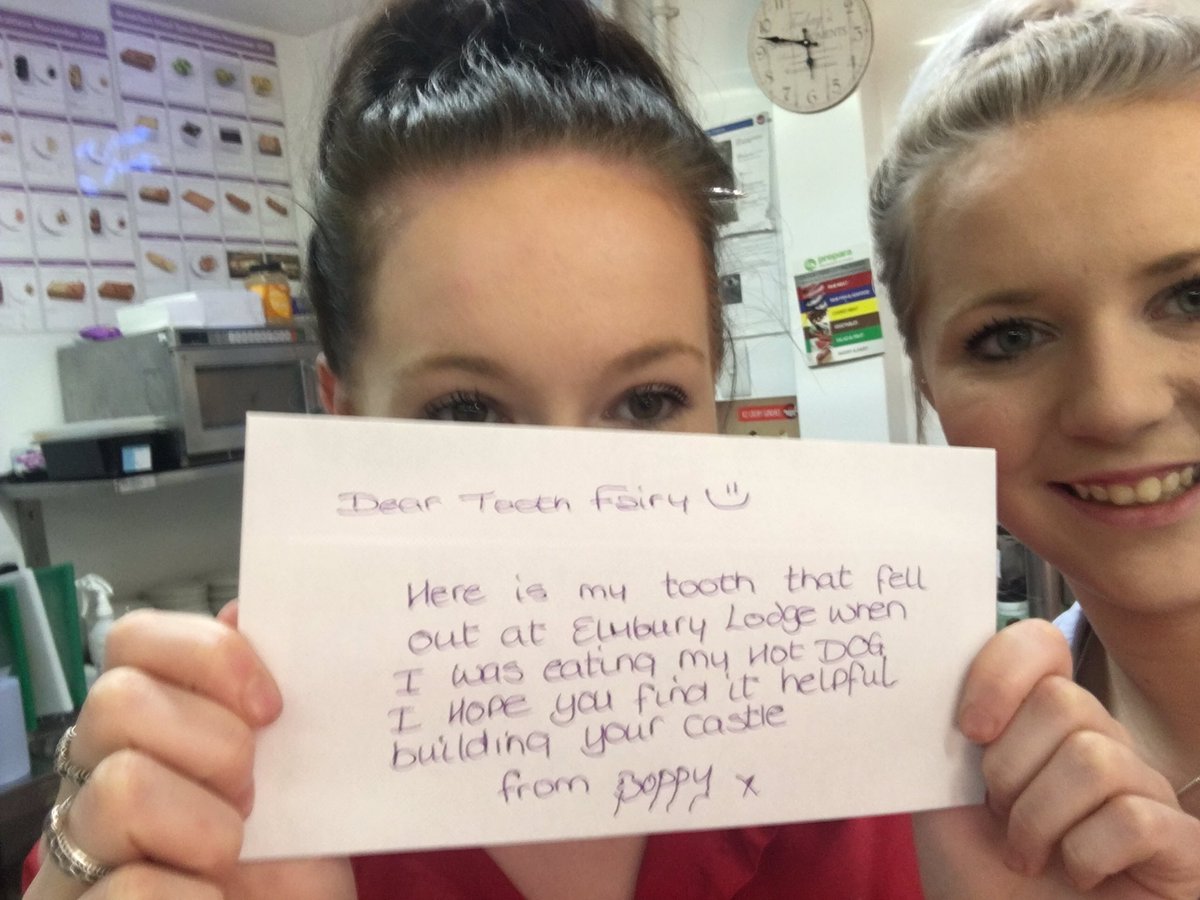 Dear Tooth Fairy
Here is my tooth that fell
out at Elmbury Lodge when
I was eating my HOT DOG
I HOPE you find it helpful
building your castle
from POPPY x
prepara